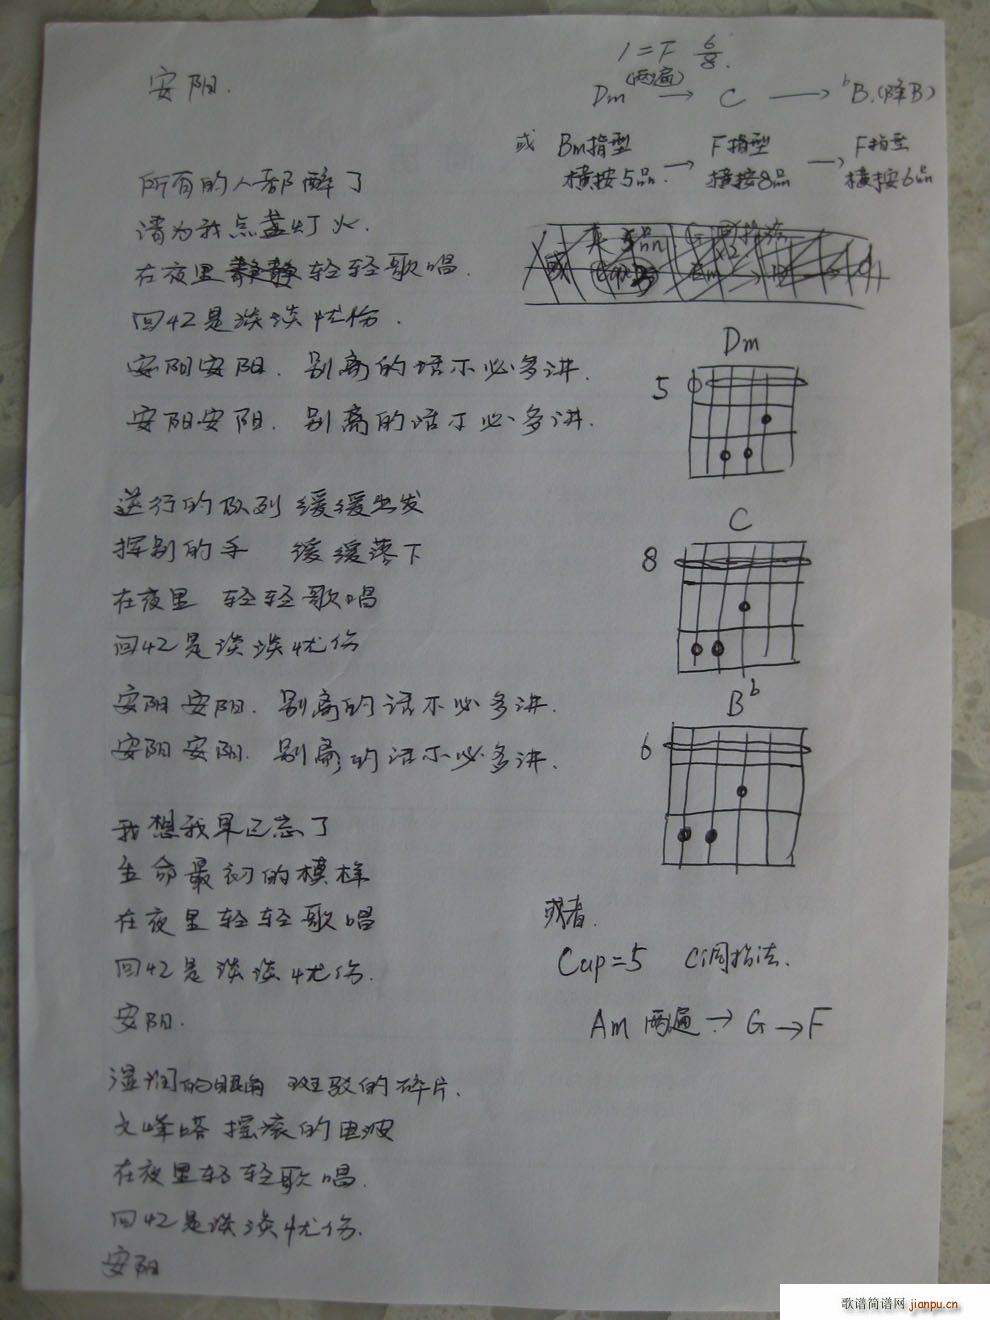 安阳.
1=F 6/8.
(两遍)
Dm → C → ᵇB.(降B)
或 Bm指型 → F指型 → F指型
横按5品. 横按8品 横按6品
所有的人都醉了
请为我点盏灯火.
在夜里 轻轻歌唱.
回忆是淡淡忧伤.
安阳安阳. 别离的话不必多讲.
安阳安阳. 别离的话不必多讲.
送行的队列 缓缓出发
挥别的手 缓缓落下
在夜里 轻轻歌唱
回忆是淡淡忧伤
安阳安阳. 别离的话不必多讲.
安阳安阳. 别离的话不必多讲.
我想我早已忘了
生命最初的模样
在夜里轻轻歌唱
回忆是淡淡忧伤.
安阳.
湿润的眼角 斑驳的碎片.
文峰塔 摇滚的电波
在夜里轻轻歌唱.
回忆是淡淡忧伤.
安阳
Dm
5
C
8
Bᵇ
6
或者.
Cap=5 C调指法.
Am 两遍 → G → F
歌谱简谱网 jianpu.cn